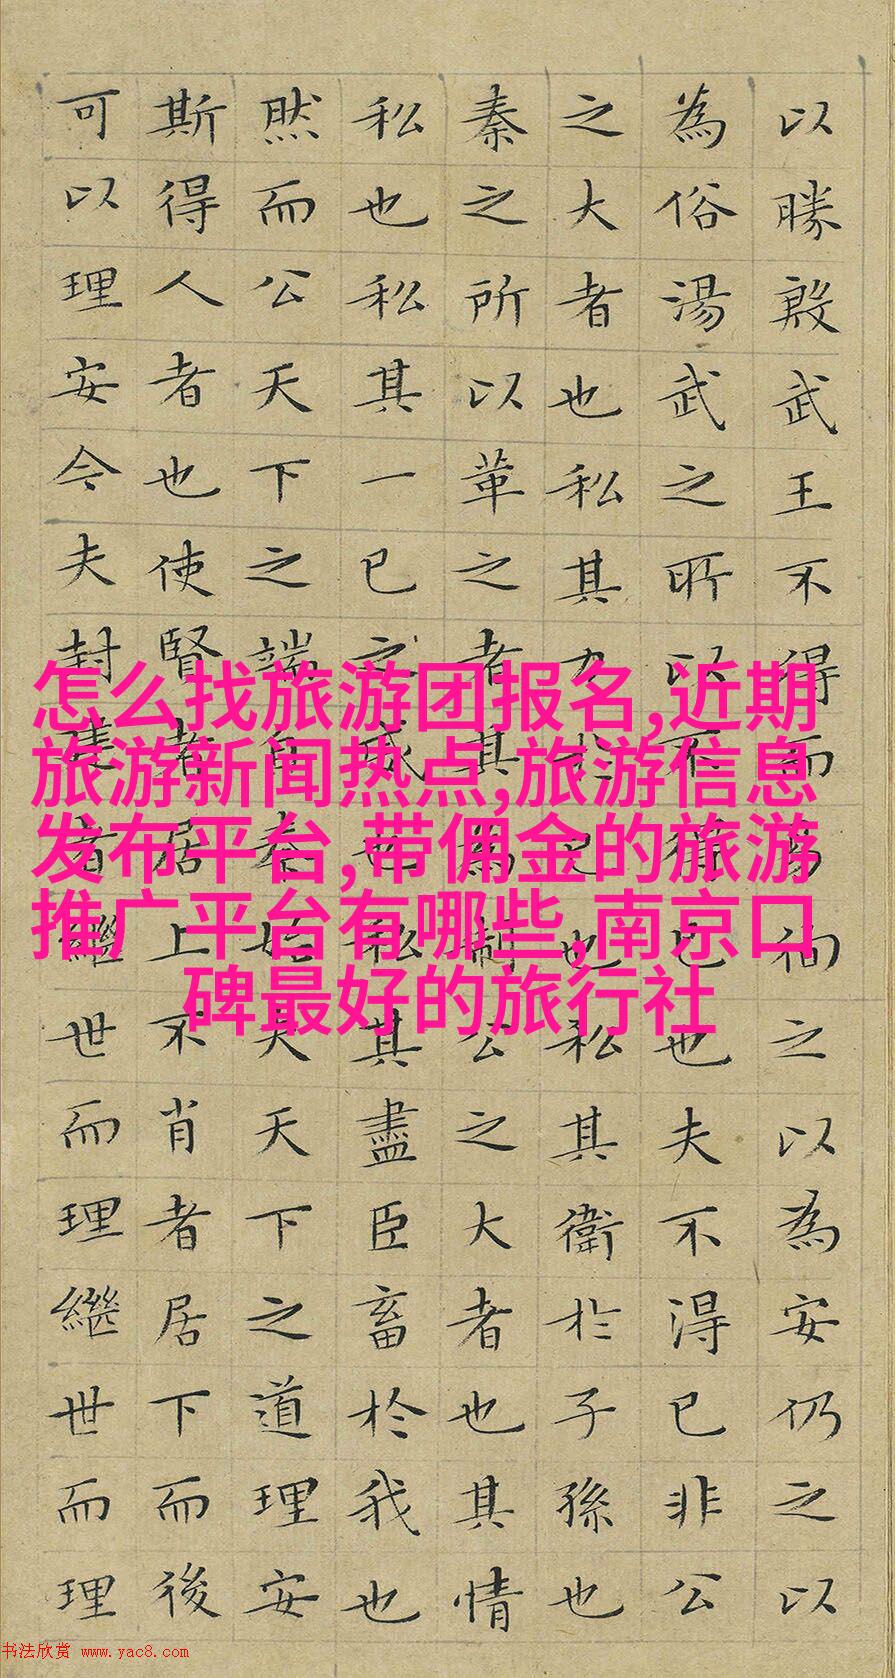 以勝殷武王不得而易徇之以為安仍之以
為俗湯武之所以不獲已也夫不得已非公
之大者也私其力於己也私其衛於子孫也
秦之所以革之者其為制公之大者也其情
私也私其一己之威也私其盡臣畜於我也
然而公天下之端自秦始夫天下之道理安
斯得人者也使賢者居上不肖者居下而後
可以理安今夫封建者繼世而理繼世而理
怎么找旅游团报名,近期
旅游新闻热点,旅游信息
发布平台,带佣金的旅游
推广平台有哪些,南京口
碑最好的旅行社
书法欣赏 www.yac8.com